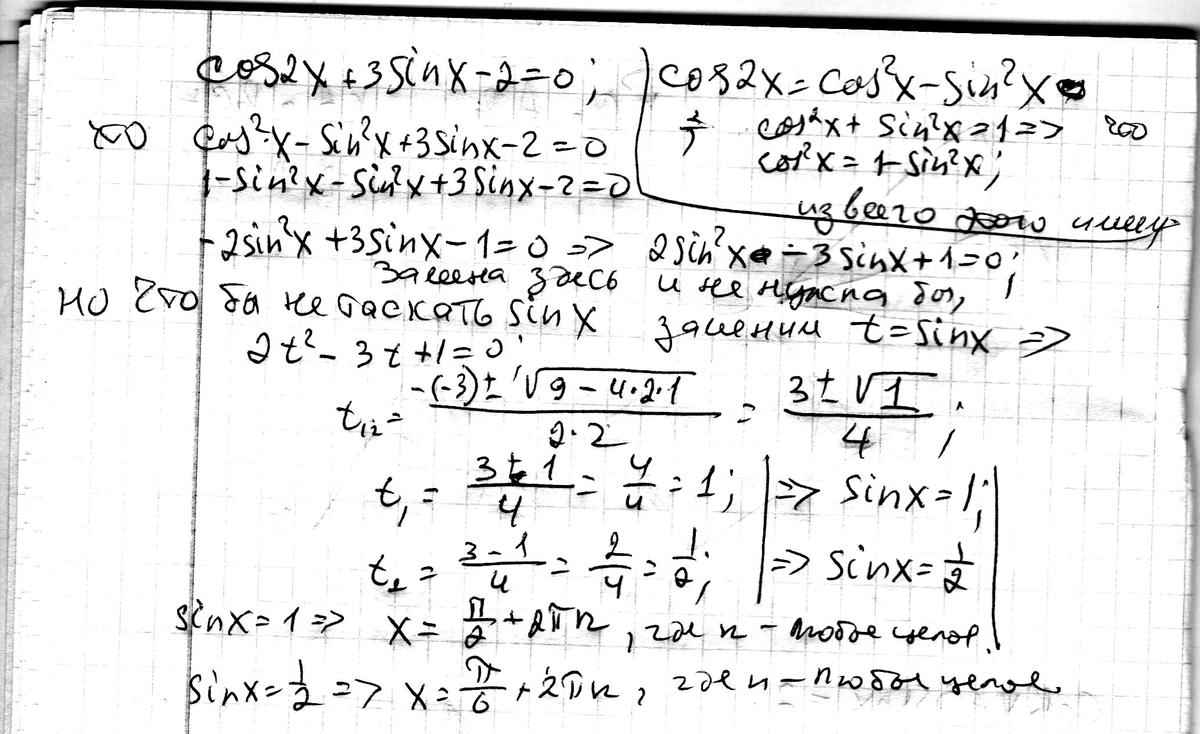 cos2x+3sinx-2=0; cos2x=cos²x-sin²x
cos²x+sin²x=1=>
cos²x=1-sin²x;
cos²x-sin²x+3sinx-2=0
1-sin²x-sin²x+3sinx-2=0
из всего имеем
-2sin²x+3sinx-1=0 => 2sin²x-3sinx+1=0;
Замена здесь и не нужна бы,
но что бы не таскать sinx заменим t=sinx =>
2t²-3t+1=0;
t₁₂= (-(-3)±√(9-4·2·1))/(2·2) = (3±√1)/4;
t₁ = (3+1)/4 = 4/4 = 1; => sinx=1;
t₂ = (3-1)/4 = 2/4 = 1/2; => sinx=1/2
sinx=1 => x=π/2+2πn, где n-любое целое.
sinx=1/2 => x=π/6+2πn, где n-любое целое